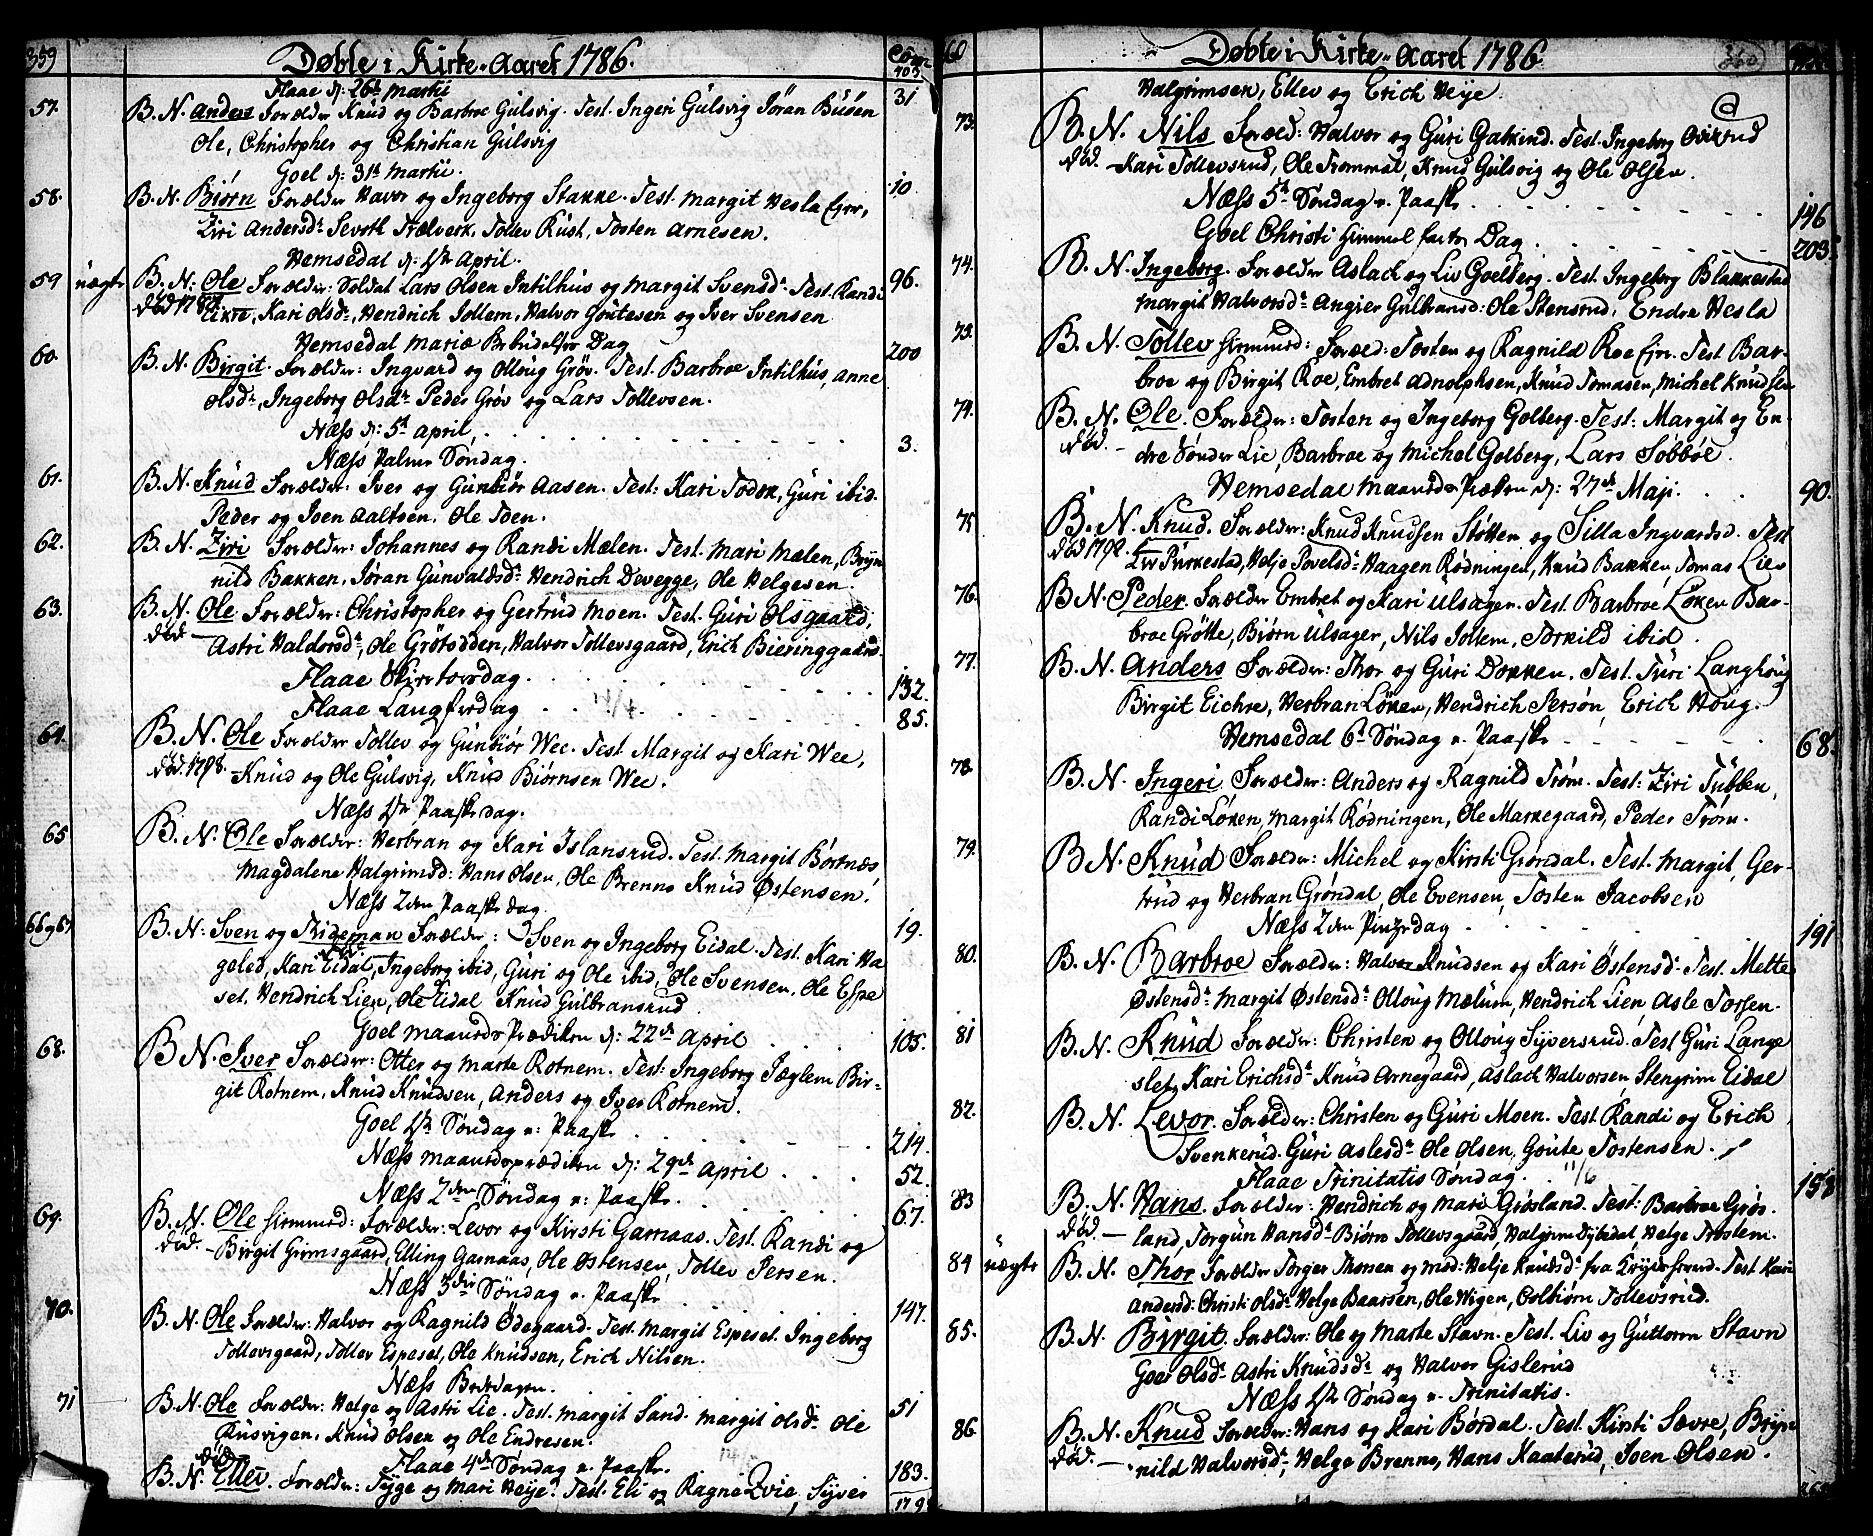 359 Døbte i Kirke-Aaret 1786. Com
703
Flaae d: 26t Martii 31
57. B. N. Anders Forælder Knud og Barbroe Gulsvig. Test. Ingeri Gulsvig Jøran Busen
Ole, Christopher og Christian Gulsvig
Goel d: 31t Martii. 10
58. B. N. Biørn Forælder Havor og Ingeborg Stakke. Test. Margit Hesla Ejer,
Ziri Andersd. Sevrth Trælverk. Tollev Rust, Tosten Arnesen.
Hemsedal d: 1ste April. 96.
59 uægte B. N: Ole Forælder: Soldat Lars Olsen Intilhus og Margit Svensd. Test. Randi
død 1788. Eikre, Kari Olsd., Hendrich Jollem, Halvor Goutesen og Iver Svensen
Hemsedal Mariæ Bebudelses Dag 200
60. B. N. Birgit. Forælder: Ingvard og Olloug Grøv. Test. Barbroe Intilhus, Anne
Olsd., Ingeborg Olsd. Peder Grøv og Lars Tollevsen.
Næss d: 5t April. 3.
Næss Palme Søndag.
61. B. N. Knud Forælder: Iver og Gunbiør Aasen. Test: Kari Todok, Guri ibid.
Peder og Joen Aaltsen. Ole Toen.
62. B. N. Ziri Forælder: Johannes og Randi Mælen. Test. Mari Mælen, Bryn
nild Bakken. Jøran Gunvaldsd. Hendrich Devegge, Ole Helgesen
63. B. N. Ole Forælder: Christopher og Gertrud Moen. Test. Guri Olsgaard,
død Astri Haldorsd., Ole Grøtodden, Halvor Tollevsgaard, Erich Bieringgaard.
Flaae Skiertorsdag. 132.
Flaae Langfredag 85.
64. B. N. Ole Forælder Tollev og Gunbiør Wee. Test. Margit og Kari Wee,
død. 1798. Knud og Ole Gulsvig, Knud Biørnsen Wee.
Næss 1ste Paaske dag.
65 B. N. Ole Forælder: Herbran og Kari Islansrud. Test. Margit Børtnæs,
Magdalene Halgrimsd: Hans Olsen, Ole Brenno Knud Østensen.
Næss 2den Paaske dag. 19.
66 og 67 B. N: Sven og Trideman Forælder: Sven og Ingeborg Eidal. Test. Kari Ha
geled, Kari Eidal, Ingeborg ibid, Guri og Ole ibid, Ole Svensen, Ole Espe
set. Hendrich Lien, Ole Eidal Knud Gulbransrud
Goel Maaneds Prædiken d: 22de April 105.
68. B. N. Iver Forælder: Otter og Marte Rotnem. Test: Ingeborg Jæglem Bir-
git Rotnem, Knud Knudsen, Anders og Iver Rotnem.
Goel 1ste Søndag e: Paaske 214.
Næss Maanedsprædiken d: 29de April 52.
Næss 2den Søndag e: Paaske. 67.
69. B. N. Ole hiemmed: Forælder: Levor og Kirsti Garnaas. Test. Randi og
død. Birgit Grimsgaard, Elling Garnaas, Ole Østensen, Tollev Persen.
Næss 3die Søndag e. Paaske 147.
70. B. N. Ole Forælder: Halvor og Ragnild Ødegaard. Test. Margit Espeset. Ingeborg
Tollevsgaard, Tollev Espeset, Ole Knudsen, Erich Nilsen.
Næss Bededagen. 51
71 B. N. Ole Forælder: Helge og Astri Lie. Test. Margit Sand. Margit Olsd. Ole
Rusvigen. Knud Olsen og Ole Endresen.
Flaae 4de Søndag e. Paaske. 183.
død B. N. Ellev. Forælder: Tyge og Mari Heije. Test. Eli og Ragne Zvie, Syver
60 Døbte i Kirke-Aaret 1786 360
Halgrimsen, Ellev og Erich Heije.
73. B. N. Nils Foræld: Halvor og Guri Gakind. Test. Ingeborg
død. Kari Tollevsrud, Ole Trommal, Knud Gulsvig og Ole Olsen.
Næss 5t Søndag e. Paaske 146
Goel Christi Himmelfarts Dag 203
74. B. N. Ingeborg. Forælder Aslach og Liv Goelberg. Test. Ingeborg Blakkestad
Margit Halvorsd. Angier Gulbransd: Ole Stensrud. Endre Hesla
73. B. N. Tollev hiemmed: Foræld: Tosten og Ragnild Roe Ejer. Test. Bar-
broe og Birgit Roe, Embret Adnolphsen, Knud Tomasen, Michel Knudsen
74. B. N. Ole. Forælder: Tosten og Ingeborg Golberg. Test: Margit og En-
død. dre Sønder Lie, Barbroe og Michel Golberg, Lars Søbbøe.
Hemsedal Maaneds Præken d: 27de Maji. 90.
75 B. N. Knud. Forælder: Knud Knudsen Støtten og Silla Ingvardsd. Test
død 1792. Liv Purkestad, Helje Povelsd. Haagen Rødningen, Knud Bakken, Tomas Lien
76. B. N. Peder. Forælder Embret og Kari Ulsager. Test. Barbroe Løken Bar-
broe Grøtte, Biørn Ulsager, Nils Jollem, Torkild ibid.
77. B. N. Anders Forælder: Thor og Guri Dokken. Test. Turi Langhoug
Birgit Eichre, Herbran Løken, Hendrich Persøn, Erich Houg.
Hemsedal 6t Søndag e. Paaske 68.
78. B. N. Ingeri Forælder: Anders og Ragnild Trøm. Test: Ziri Tubben,
Randi Løken, Margit Rødningen, Ole Markegaard, Peder Trøm.
79. B. N. Knud Forælder: Michel og Kirsti Grøndal. Test. Margit, Ger-
trud og Herbran Grøndal, Ole Evensen, Tosten Jacobsen
Næss 2den Pinzedag 191
80. B. N. Barbroe Forælder: Halvor Knudsen og Kari Østensd. Test. Mette
Østensd. Margit Østensd. Olloug Mælum, Hendrich Lien, Asle Torsen.
81 B. N. Knud Forælder: Christen og Olloug Syversrud. Test Guri Lange
slet, Kari Erichsd. Knud Arnegaard, Aslach Halvorsen Stengrim Eidal
82. B. N. Levor. Forælder: Christen og Guri Moen. Test. Randi og Erich
Svenkerud. Guri Aslesd. Ole Olsen, Goute Tostensen.
Flaae Trinitatis Søndag. 11/6 158
83 B. N. Hans. Forælder: Hendrich og Mari Grøsland. Test: Barbroe Grøs.
død. land, Torgun Hansd. Biørn Tollevsgaard, Halgrim Dybedal, Helge Trostem.
84 uægte B. N. Thor Forælder Torger Thorsen og Mod: Helje Knudsd. fra Test Kari
Andersd: Christi Olsd. Helge Baarsen, Ole Wigen, Colbiørn Tollevsrud.
85. B. N. Birgit. Forælder: Ole og Marte Stavn. Test. Liv og Guttorm Stavn
Goer Olsd. Astri Knudsd. og Halvor Gislerud
Næss 1ste Søndag e. Trinitatis.
86. B. N. Knud Forælder: Hans og Kari Børdal. Test. Kirsti Sævre, Bryn
død. nild Halvorsd., Helge Brenno, Hans Kaaterud, Joen Olsen.